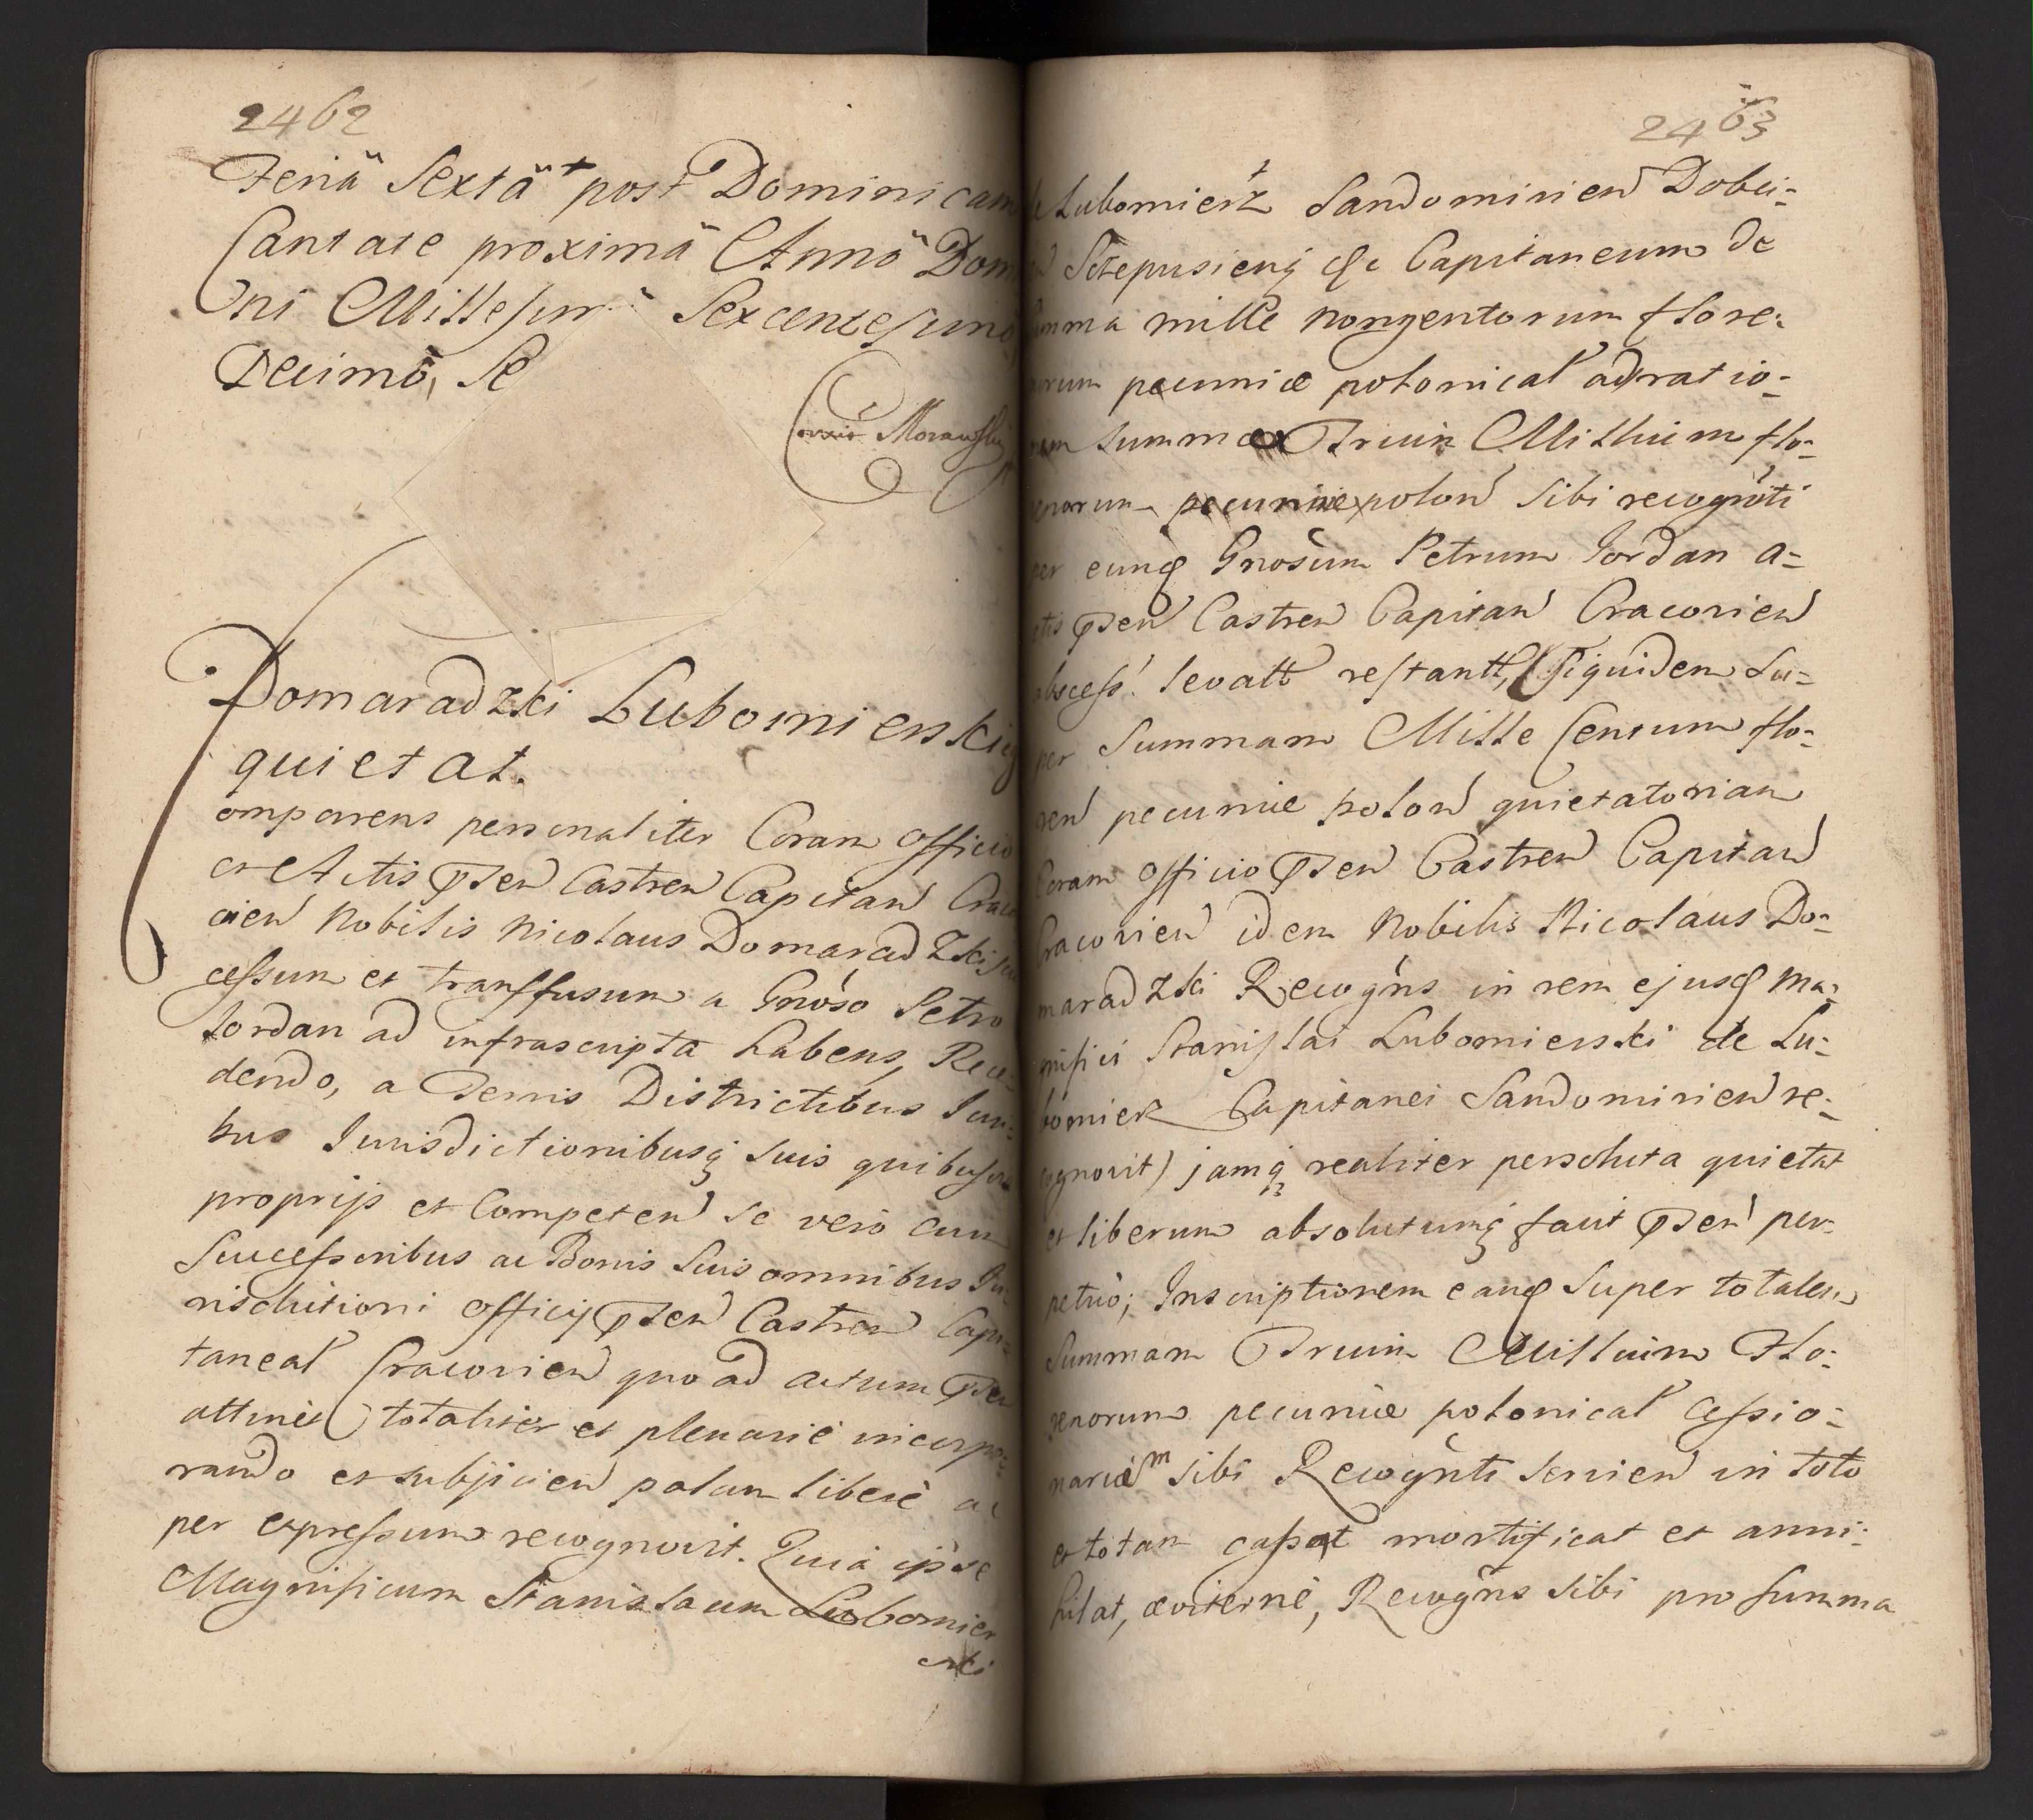 2462
Feriâ Sextâ post Dominicam
Cantate proximâ Annô Dom
ni Millesim Sexcentesimô
Decimô, Se
Morawski
Domaradzki Lubomierski
quietat.
omparens personaliter Coram Officio
et Actis pñsen Castren Capitan Crac
vien Nobilis Nicolaus Domaradzki
cessum et transfusum a Gnôso Petro
Jordan ad infrascripta habens, Rece-
dendo, a Terris Districtibus Juri-
bus Jurisdictionibusq suis quibusvis
proprijs et Competen se verò cum
Successoribus ac Bonis suis omnibus Ju-
risdictioni Officij pñsen Castren Capi-
taneal Cracovien quoad actum pñsen
attinet totaliter et plenariè incorpo-
rando et subjicien palam liberè ac
per expressum recognovit. Quia ipse
Magnificum Stanislaum Lubomier
ski
2463
de Lubomierz Sandomirien Dobci-
Scepusieñq &c Capitaneum de
summa mille nongentorum flore-
norum pecuniæ polonical ad ratio-
nem summæ Trium Millium flo-
renorum pecuniæ polon sibi recognôti
per eunq Gnosum Petrum Jordan a-
ctis pñsen Castren Capitan Cracovien
abscess. levatt restantt, (siquidem su-
per Summam Mille Centum flo-
ren pecuniæ polon quietatoriam
Coram officio pñsen Castren Capitan
Cracovien idem Nobilis Nicolaus Do-
maradzki Recogñs in rem ejusq Ma-
gnifici Stanislai Lubomierski de Lu-
bomierz Capitanei Sandomirien re-
cognovit) jamq realiter persoluta quietat
et liberum absolutumq facit pñsen per-
petuò; Inscriptionem eanq super totalem
Summam Trium Millium Flo-
renorum pecuniæ polonical Cessio-
nariæm sibi Recogñti servien in toto
et totam cassat mortificat et anni-
hilat, æviternè, Recogñs sibi pro summa